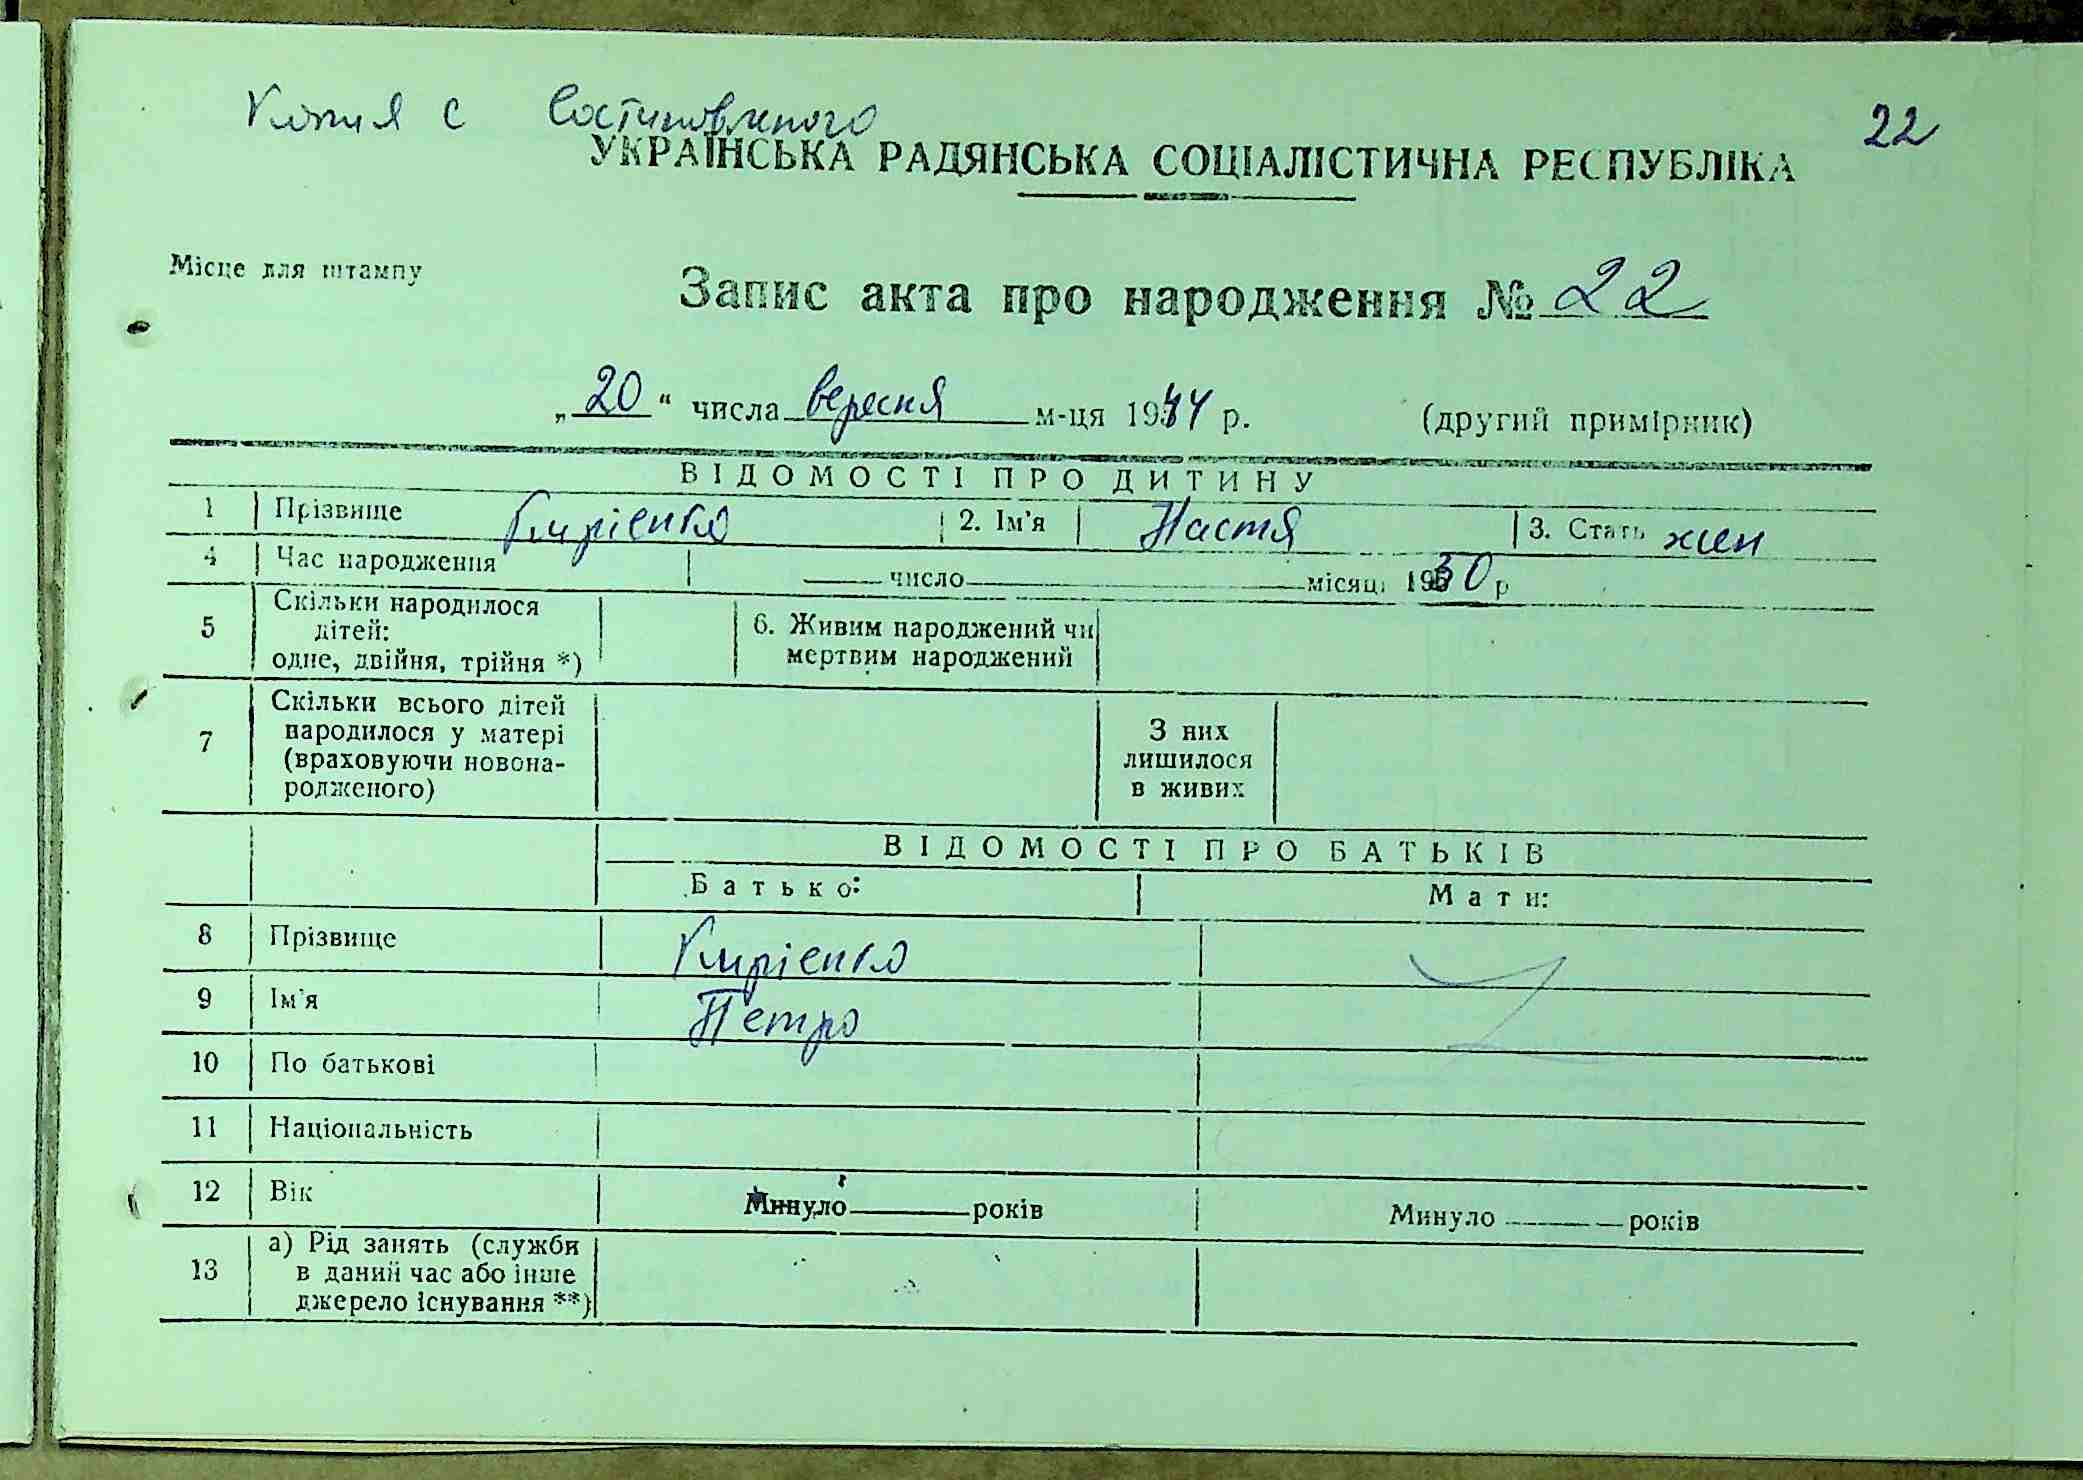 Копия с Востановленого
22
УКРАЇНСЬКА РАДЯНСЬКА СОЦІАЛІСТИЧНА РЕСПУБЛІКА
Місце для штампу
Запис акта про народження № 22
„20“ числа вересня м-ця 1944 р. (другий примірник)
ВІДОМОСТІ ПРО ДИТИНУ
1 Прізвище Кирієнко 2. Ім'я Настя 3. Стать жен
4 Час народження число місяця 1930 р
5 Скільки народилося дітей: одне, двійня, трійня *) 6. Живим народжений чи мертвим народжений
7 Скільки всього дітей народилося у матері (враховуючи новонародженого) З них лишилося в живих
ВІДОМОСТІ ПРО БАТЬКІВ
Батько: Мати:
8 Прізвище Кирієнко
9 Ім'я Петро
10 По батькові
11 Національність
12 Вік Минуло років Минуло років
13 а) Рід занять (служби в даний час або інше джерело існування **)